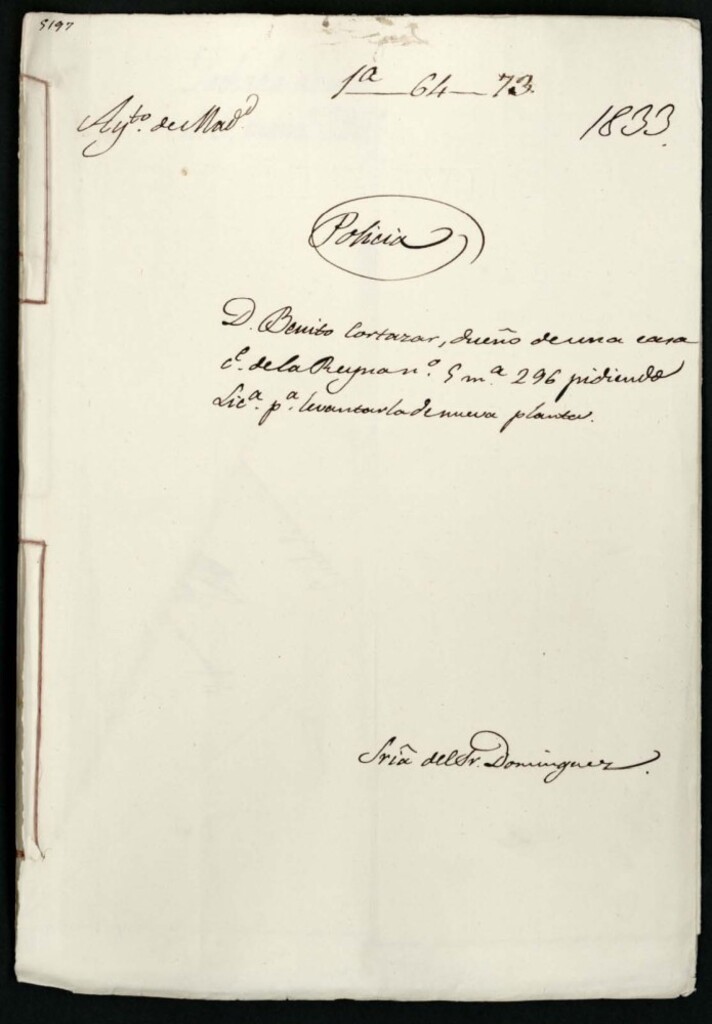 5197
1ª 64 73.
Aytº. de Madd.
1833.
Policia
D. Benito Cortazar, dueño de una casa
cˡᵉ. de la Reyna nº. 5 mª 296 pidiendo
Licª. pª. levantarla de nueva planta.
Sria del Sr. Dominguez.